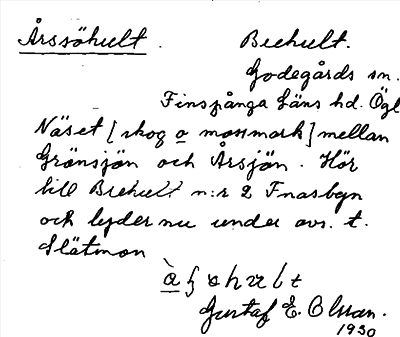 Årssöhult. Brehult.
Godegårds sn.
Finspånga Läns hd. Ögl
Näset [skog o mossmark] mellan
Gränsjön och Årsjön. Hör
till Brehult n:r 2 Fnasbyn
och lyder nu under avs. t.
Slätmon
Gustaf E. Olsson.
1930